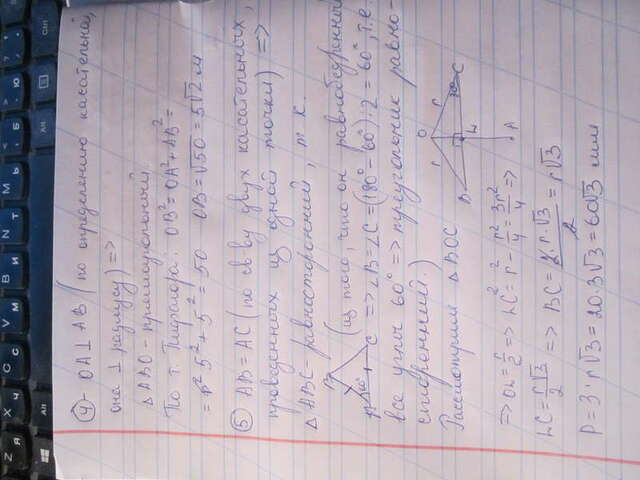 Z Я
X Ч
C С
V М
B И
N Т
M Ь
< Б
> Ю
?
Alt
Alt
Ctrl
④- OA⊥AB (по определению касательной,
она ⊥ радиусу) =>
△ABO - прямоугольный.
По т. Пифагора: OB² = OA² + AB² =
= 5² + 5² = 50 OB = √50 = 5√2 м
⑤ AB = AC (по св-ву двух касательных,
проведенных из одной точки) =>
△ABC - равносторонний, т к.
B
A 60° C
(из того, что он равнобедренный
=> ∠B = ∠C = (180° - 60°) : 2 = 60°, т.е.
все углы 60° => треугольник равно-
сторонний.)
Рассмотрим △BOC
O
r r
B 30° C
L
A
=> OL = r/2 => LC² = r² - r²/4 = 3r²/4 =>
LC = r√3/2 => BC = 2·r·√3/2 = r√3
P = 3·r√3 = 20·3√3 = 60√3 мм